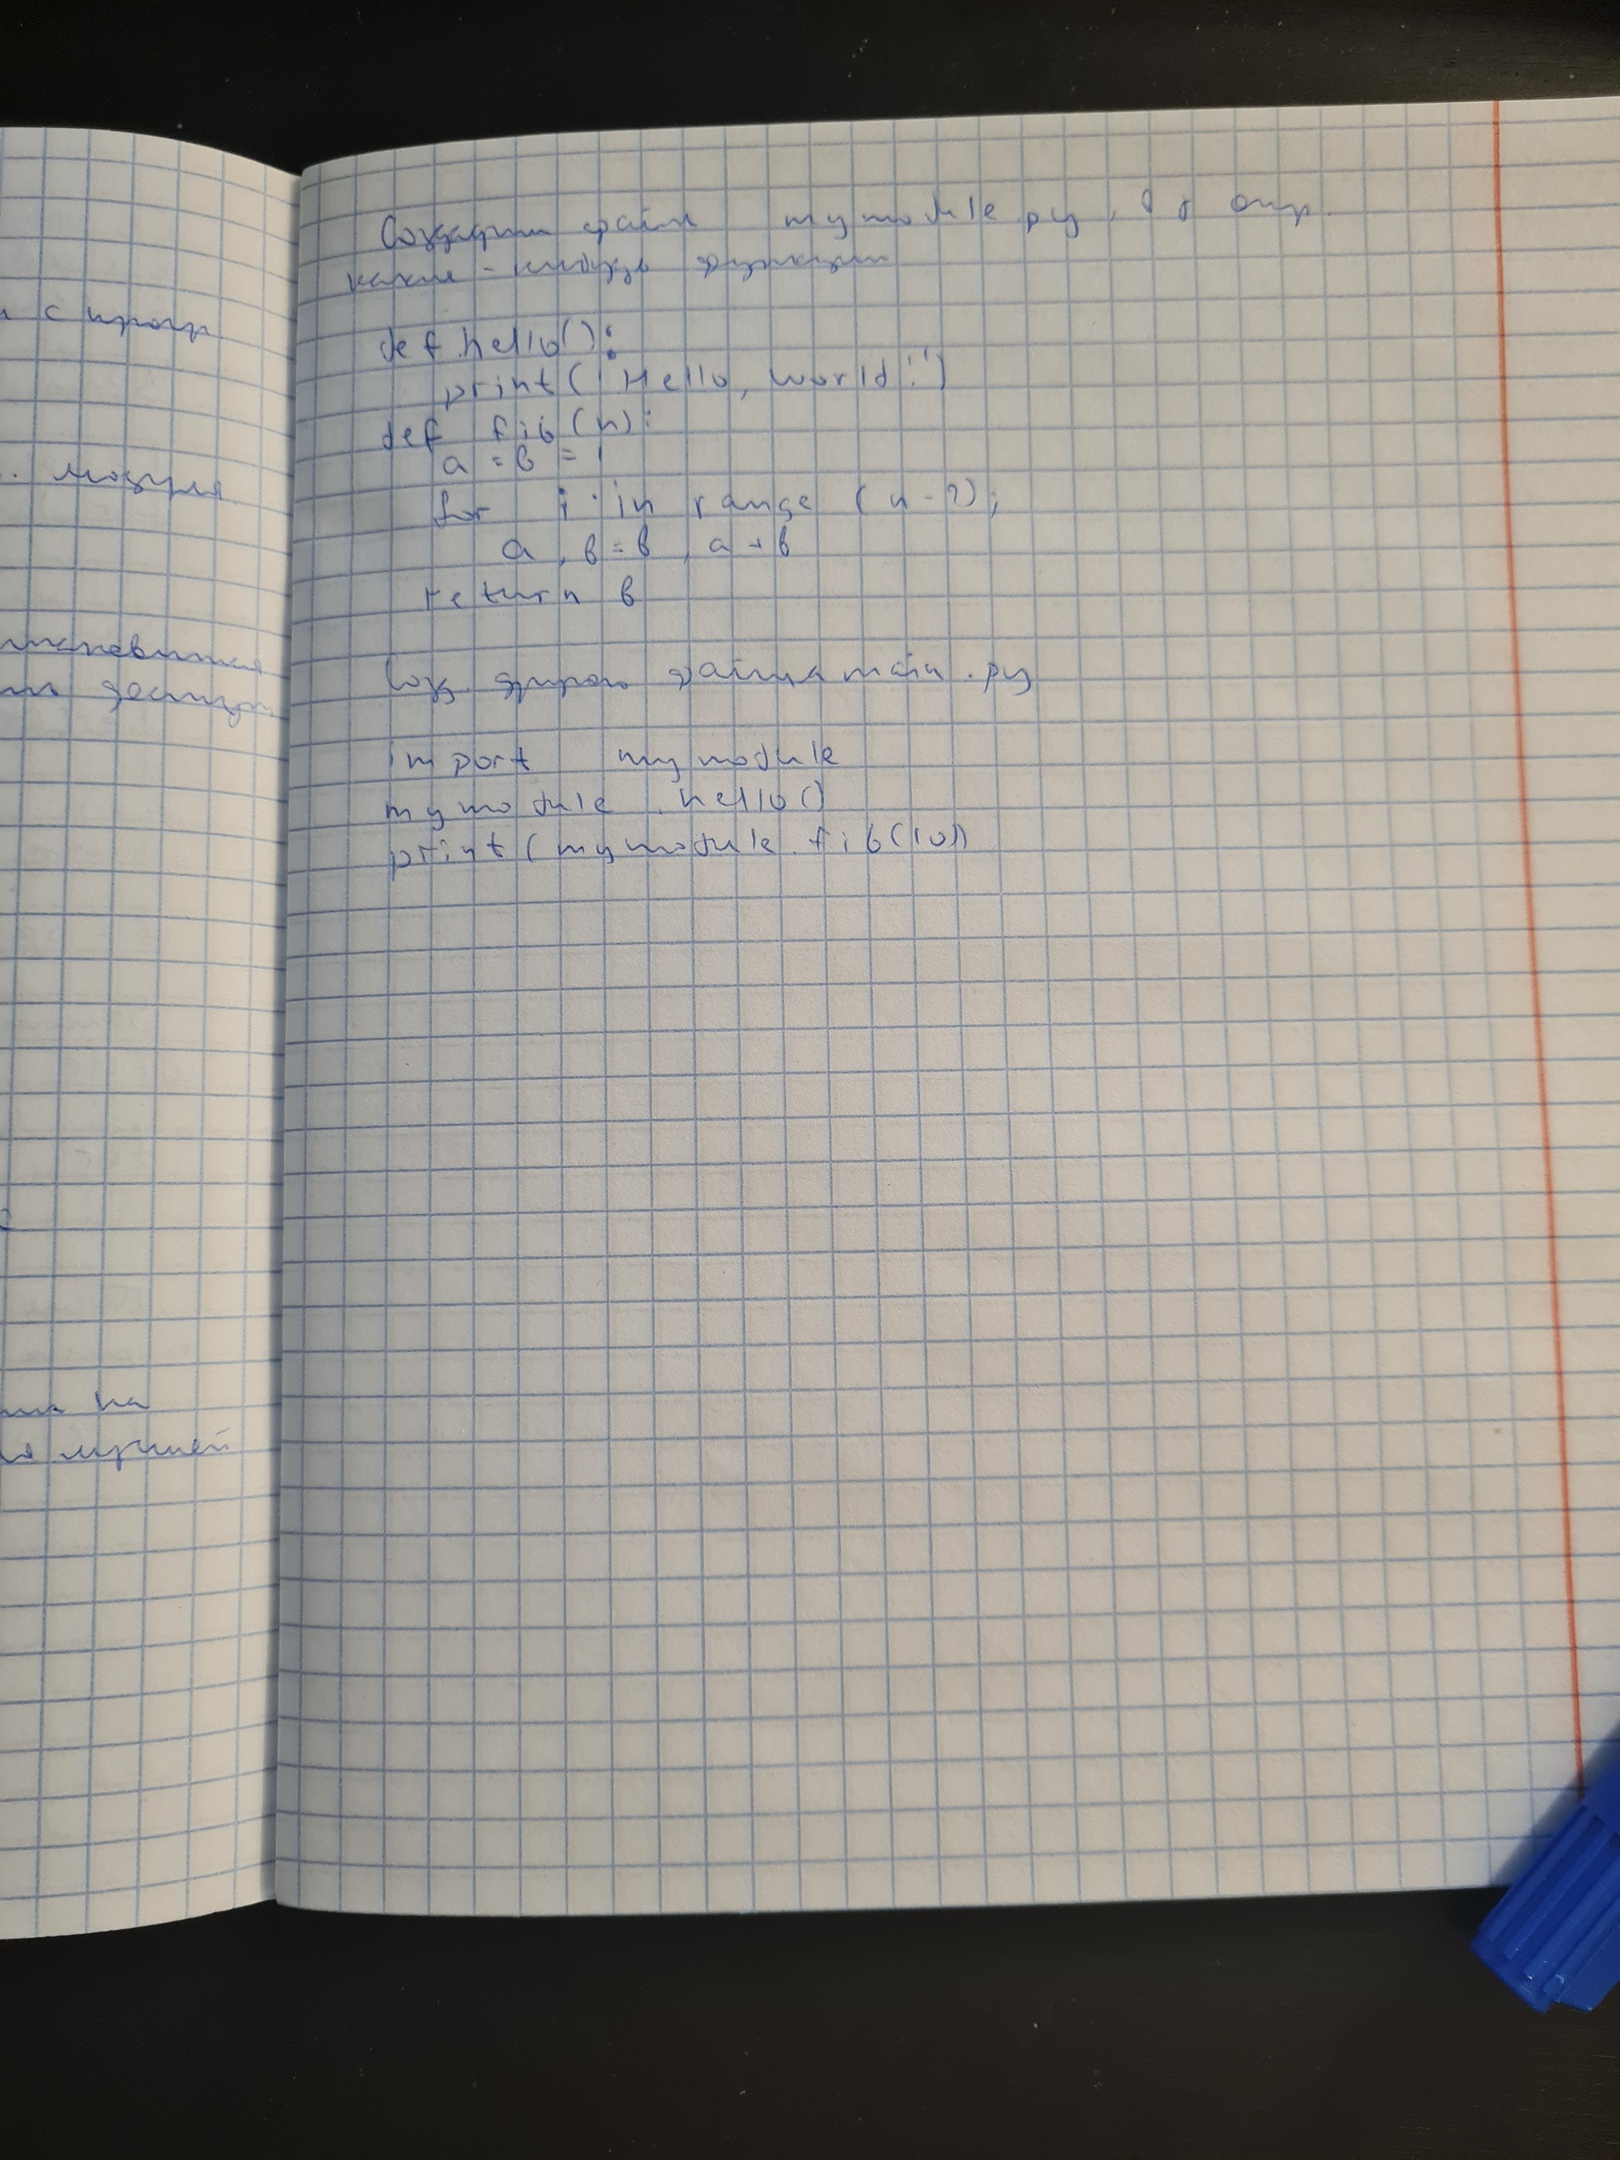 с прогр
модуля
становится
Создадим файл mymodule.py, в опр.
какие-нибудь функции
def hello():
print('Hello, world!')
def fib(n):
a = b = 1
for i in range (n-2):
a, b = b, a + b
return b
Созд. другого файла main.py
import mymodule
mymodule.hello()
print(mymodule.fib(10))
на
лучшей